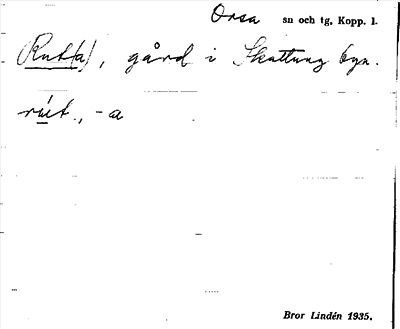 Orsa sn och tg, Kopp. l.
(Rut(a), gård i Skattungbyn.
rút., -a
Bror Lindén 1935.